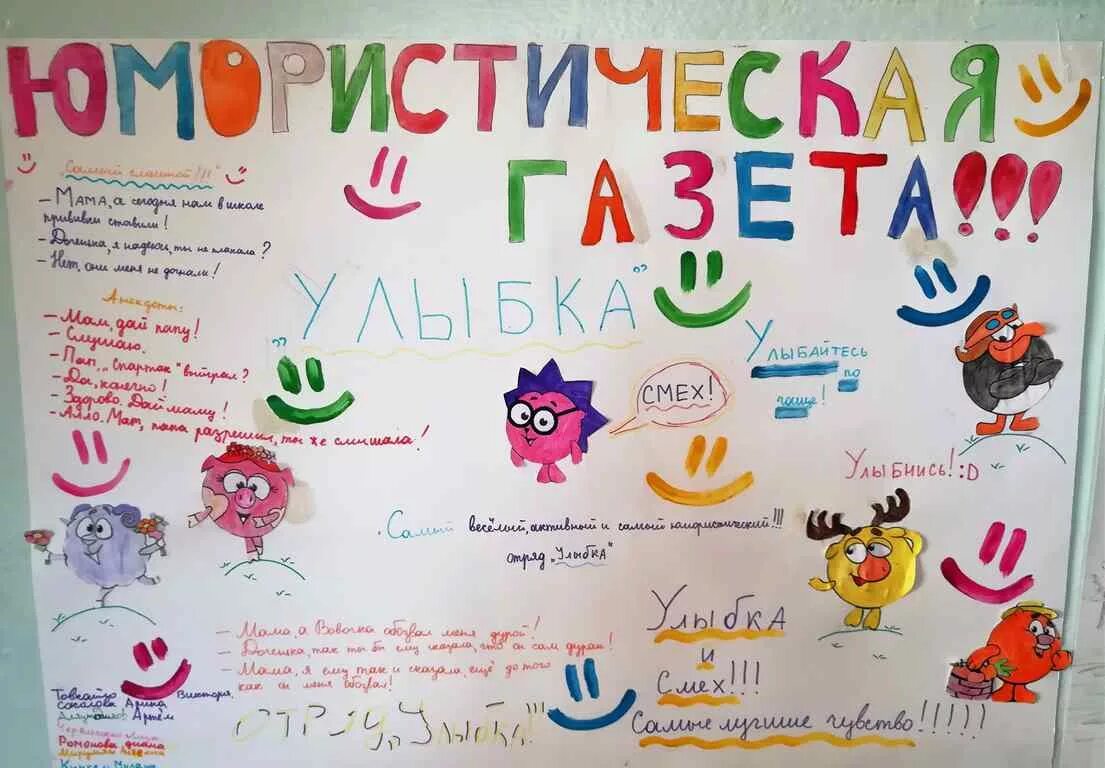 ЮМОРИСТИЧЕСКАЯ
ГАЗЕТА!!!
"Самый смешной!!!"
– Мама, а сегодня нам в школе
прививки ставили!
– Доченька, я надеюсь, ты не плакала?
– Нет, они меня не догнали!
Анекдоты:
– Мам, дай папу!
– Слушаю.
– Пап, „Спартак" выиграл?
– Да, конечно!
– Здорово. Дай маму!
– Алло. Мам, папа разрешил, ты же слышала!
„УЛЫБКА"
СМЕХ!
УЛЫБАЙТЕСЬ
по
чаще!
Улыбнись! :D
Самый весёлый, активный и самый юмористический!!!
отряд „Улыбка"
– Мама, а Вовочка обозвал меня дурой!
– Доченька, так ты бы ему сказала, что он сам дурак!
– Мама, я ему так и сказала, ещё до того
как он меня обозвал!
Улыбка
и
Смех!!!
Самые лучшие чувство!!!!!
ОТРЯД „Улыбка"!!!
Виктория,
Арина
Артём
Ромонова диана